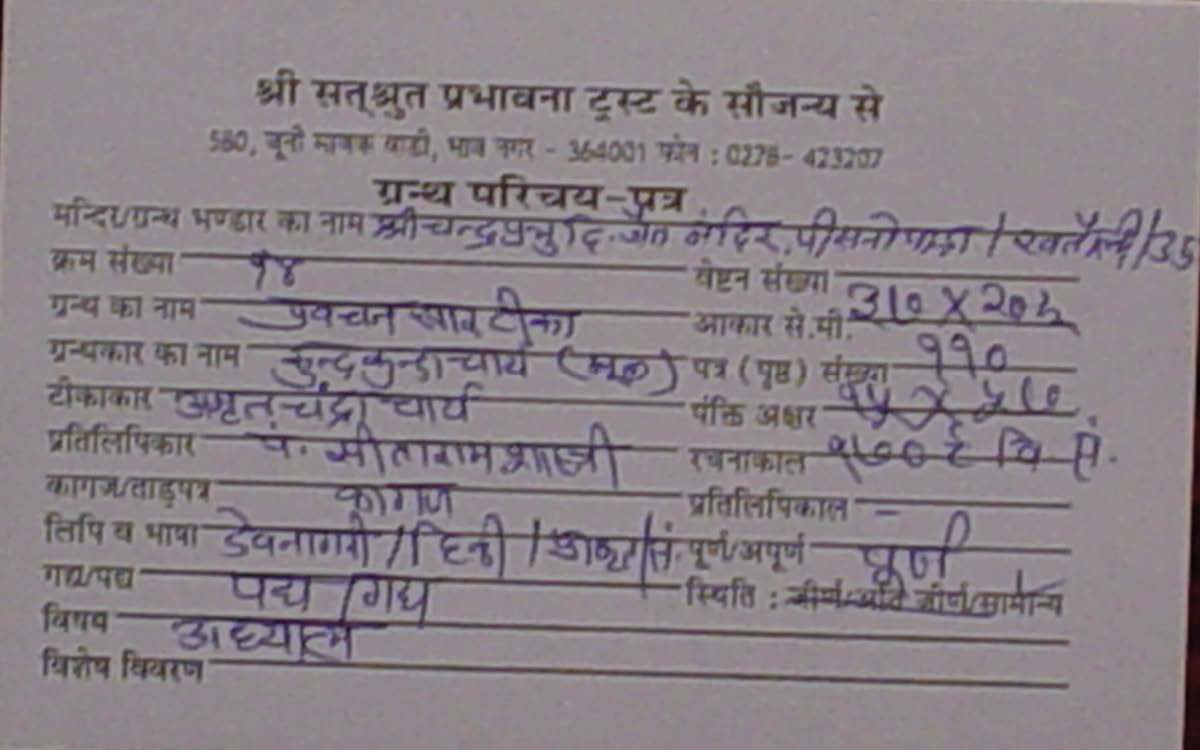 श्री सत्श्रुत प्रभावना ट्रस्ट के सौजन्य से
580, जूनी माणेक वाडी, भाव नगर - 364001 फोन : 0278- 423207
ग्रन्थ परिचय-पत्र
मन्दिर/ग्रन्थ भण्डार का नाम श्री चन्द्रप्रभु दि. जैन मंदिर, पीसनोपाडा / खतौली / उ.प्र
क्रम संख्या १४ वेष्टन संख्या
ग्रन्थ का नाम प्रवचनसार टीका आकार से.मी. ३१० X २०५
ग्रन्थकार का नाम कुन्दकुन्दाचार्य (मूल) पत्र (पृष्ठ) संख्या ११०
टीकाकार अमृतचंद्राचार्य पंक्ति अक्षर १५ X
प्रतिलिपिकार पं. सीताराम शास्त्री रचनाकाल १७०९ वि सं.
कागज/ताड़पत्र कागज प्रतिलिपिकाल —
लिपि व भाषा देवनागरी / हिन्दी / प्राकृत/सं. पूर्ण/अपूर्ण पूर्ण
गद्य/पद्य पद्य / गद्य स्थिति : जीर्ण/अति जीर्ण/सामान्य
विषय अध्यात्म
विशेष विवरण